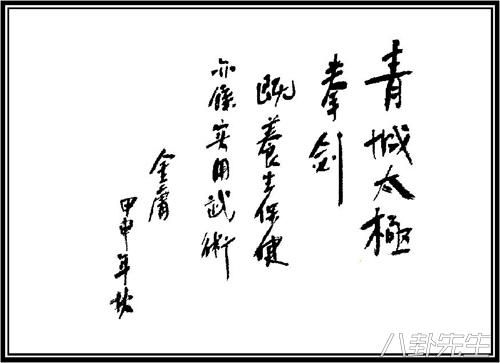 青城太極
拳剑
既養生保健
亦係实用武術
金庸
甲申年秋
八卦先生